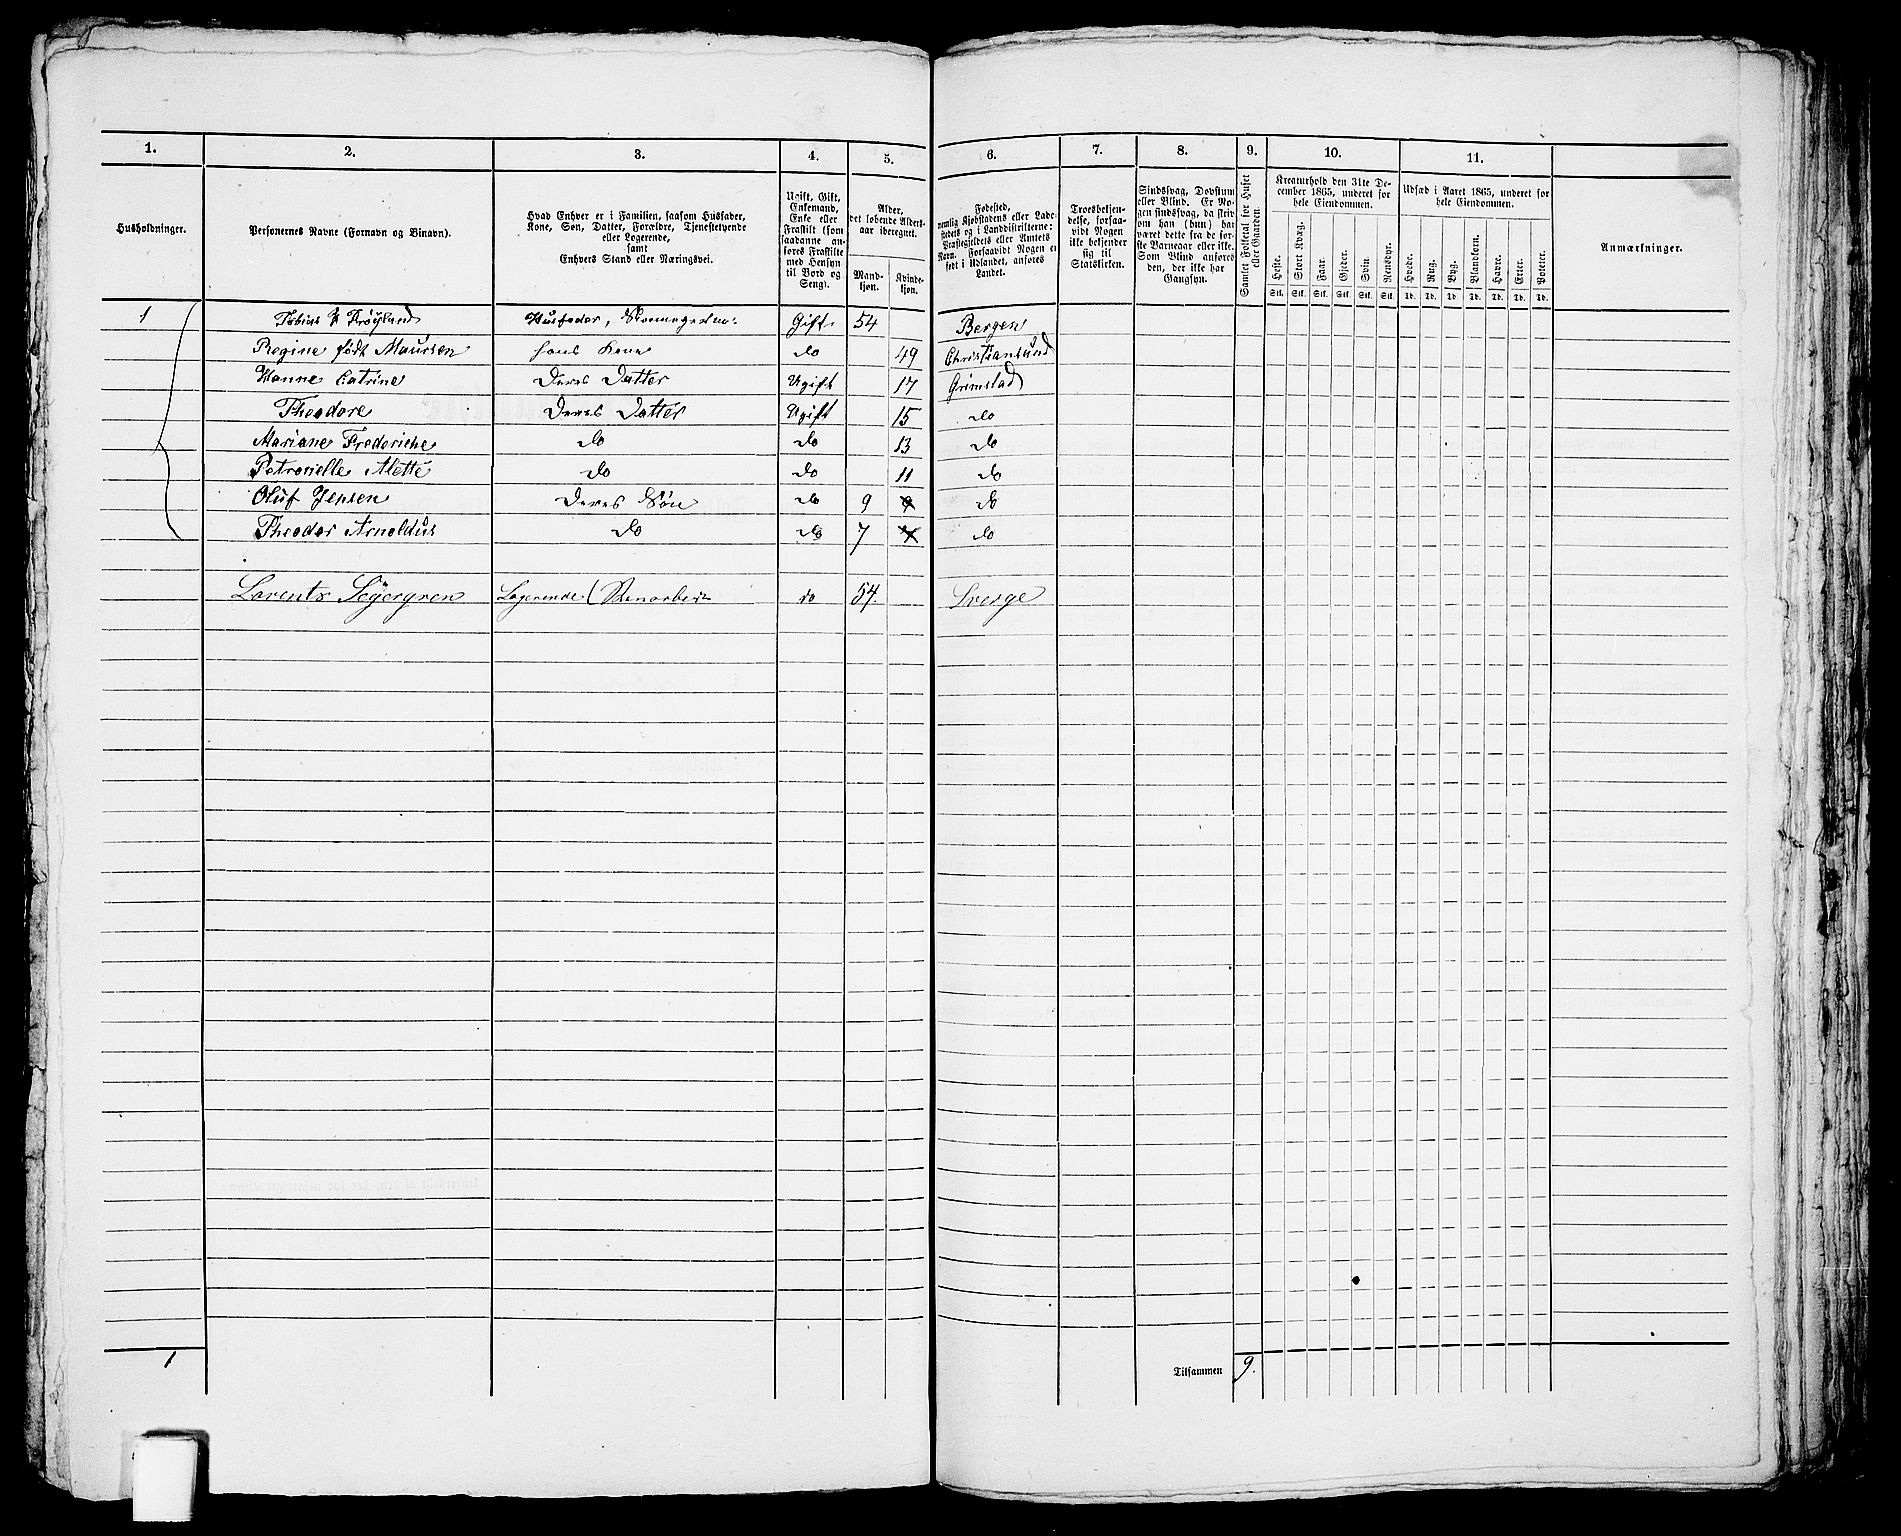 1. 2. 3. 4. 5. 6. 7. 8. 9. 10. 11.
Husholdninger.
Personernes Navne (Fornavn og Binavn).
Hvad Enhver er i Familien, saasom Husfader,
Kone, Søn, Datter, Forældre, Tjenestetyende
eller Logerende,
samt
Enhvers Stand eller Næringsvei.
Ugift, Gift,
Enkemand,
Enke eller
Fraskilt (som
saadanne an-
føres Fraskilte
med Hensyn
til Bord og
Seng).
Alder,
det løbende Alders-
aar iberegnet.
Mand-
kjøn.
Kvinde-
kjøn.
Fødested,
nemlig Kjøbstadens eller Lade-
stedets og i Landdistrikterne:
Præstegjeldets eller Amtets
Navn. Forsaavidt Nogen er
født i Udlandet, anføres
Landet.
Troesbekjen-
delse, forsaa-
vidt Nogen
ikke bekjender
sig til
Statskirken.
Sindssvag, Døvstum
eller Blind. Er No-
gen sindssvag, da skriv
om han (hun) har
været dette fra de før-
ste Barneaar eller ikke.
Som Blind anføres
den, der ikke har
Gangsyn.
Samlet Folketal for Huset
eller Gaarden.
Kreaturhold den 31te De-
cember 1865, underet for
hele Eiendommen.
Heste. Stort Kvæg. Faar. Gjeder. Svin. Rensdyr.
Stk. Stk. Stk. Stk. Stk. Stk.
Udsæd i Aaret 1865, underet for
hele Eiendommen.
Hvede. Rug. Byg. Blandkorn. Havre. Erter. Poteter.
Td. Td. Td. Td. Td. Td. Td.
Anmærkninger.
1 Tobias Frøyland Husfader, Gift 54 Bergen
Regine født Maursen hans Kone do 49 Christiansund
Hanne Catrine Deres Datter Ugift 17 Grimstad
Theodore Deres Datter Ugift 15 do
Mariane Frederiche do do 13 do
Petronelle Alette do do 11 do
Oluf Jensen Deres Søn do 9 do
Theodor Arnoldus do do 7 do
Lorents Søgergren Logerende do 54. Sverge
1 Tilsammen 9.